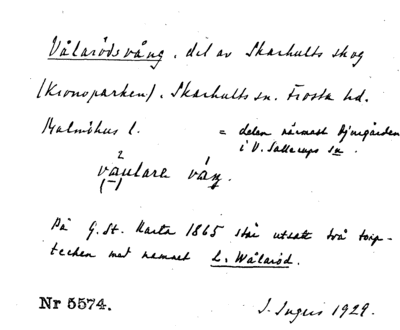 Vålarödsvång, del av Skarhults skog
(Kronoparken). Skarhults sn. Frosta hd.
Malmöhus l. = delen närmast Djurgården
i V. Sallerups sn.
våulare våŋ.
På G. St. Karta 1865 står utsatt två torp-
tecken med namnet L. Wålaröd.
Nr 5574. S. Ingers 1929.